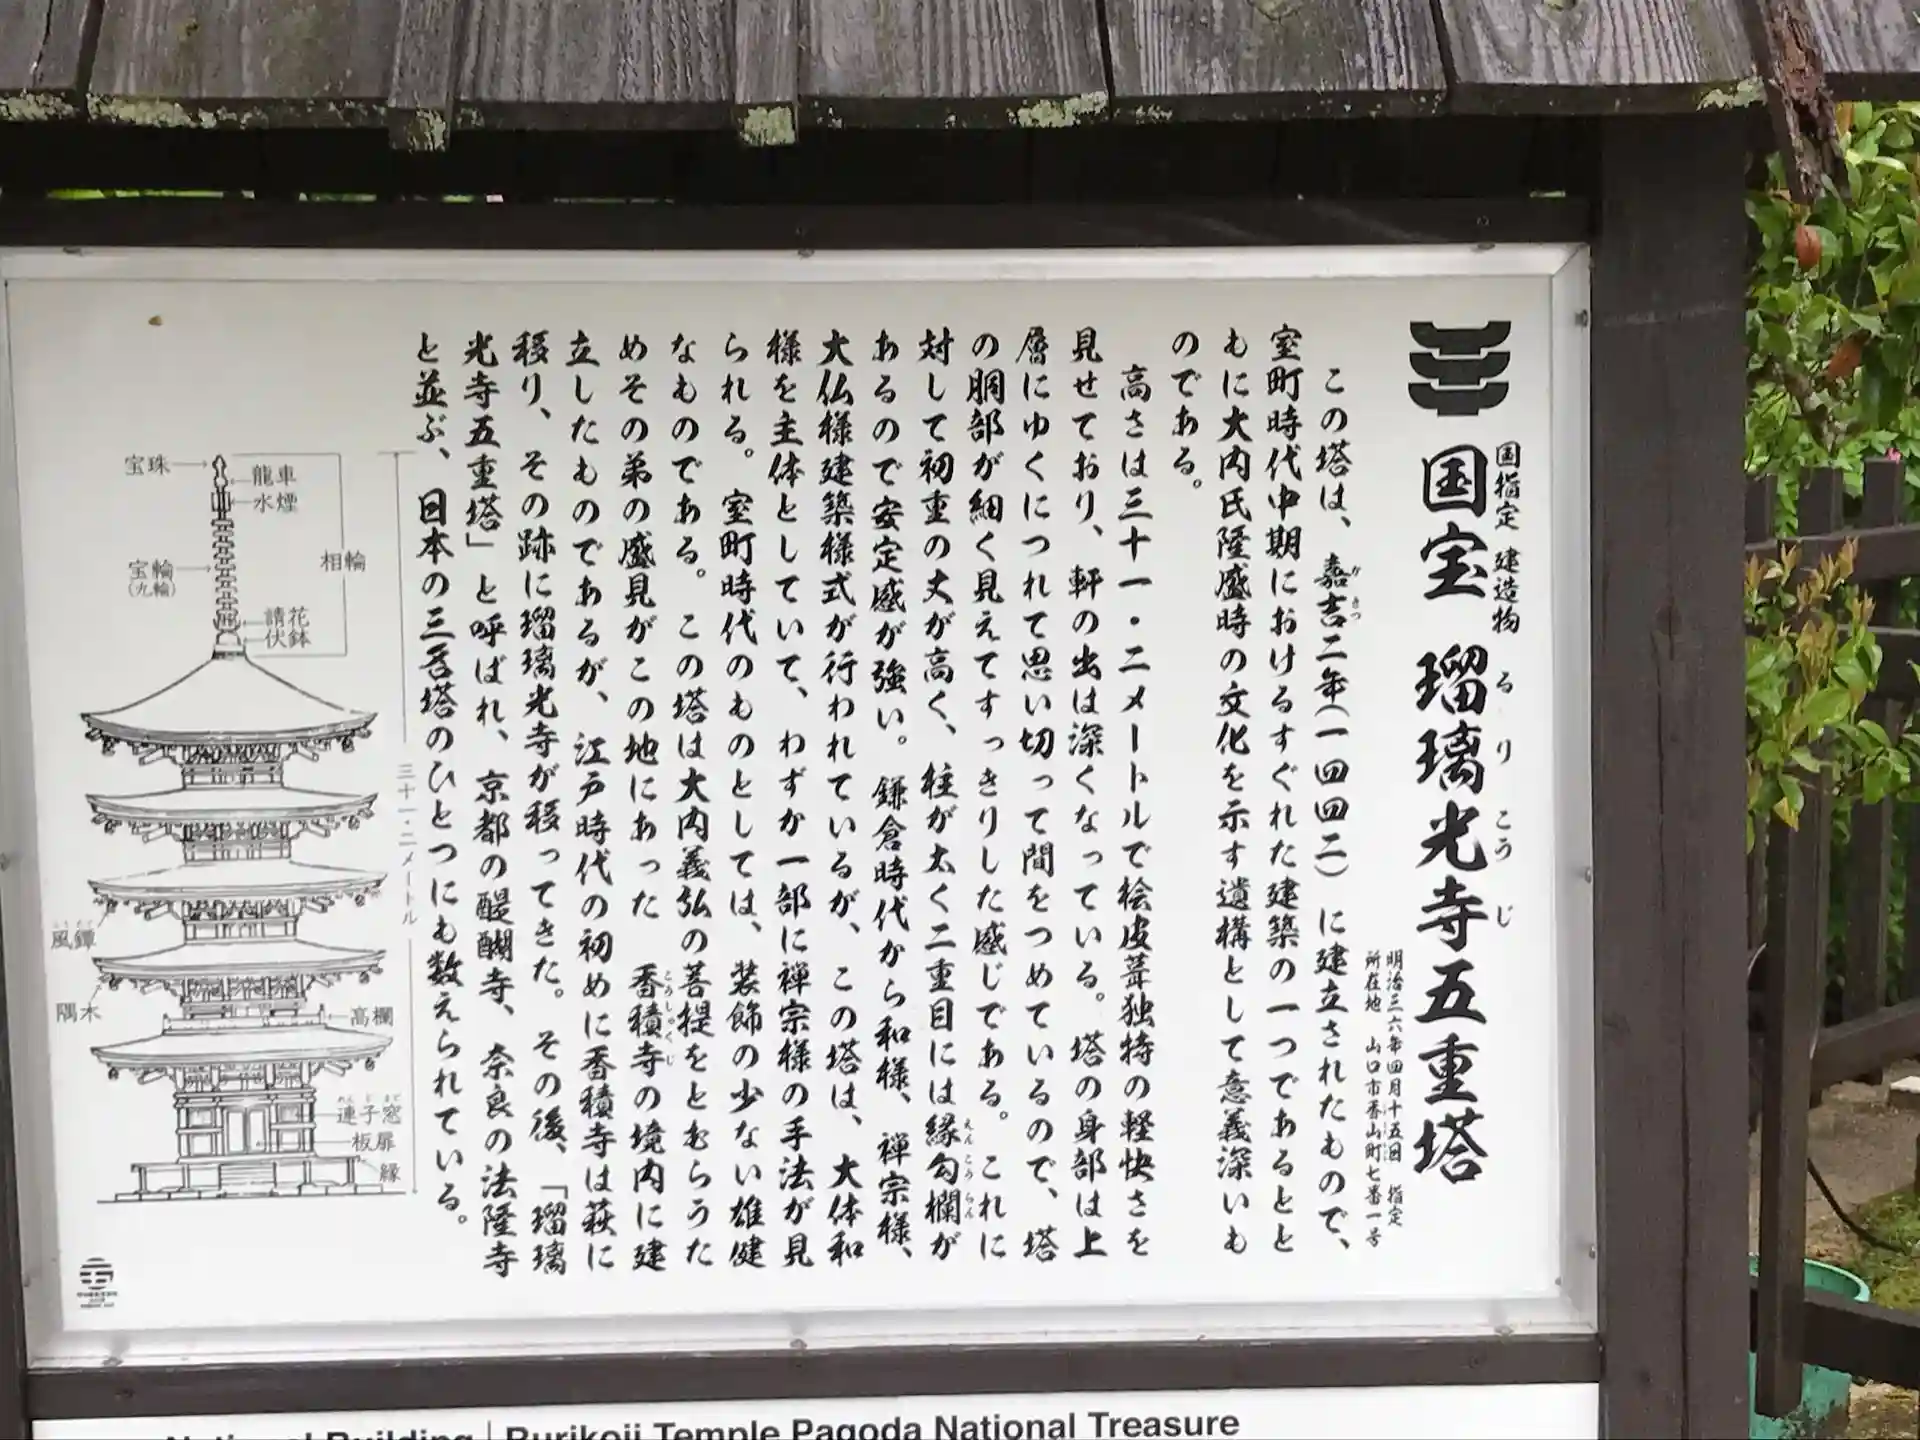 国指定 建造物
国宝 瑠璃光寺五重塔
るりこうじ
明治三六年四月十五日 指定
所在地 山口市香山町七番一号
この塔は、嘉吉二年(一四四二)に建立されたもので、
かきつ
室町時代中期におけるすぐれた建築の一つであるとと
もに大内氏隆盛時の文化を示す遺構として意義深いも
のである。
高さは三十一・二メートルで桧皮葺独特の軽快さを
見せており、軒の出は深くなっている。塔の身部は上
層にゆくにつれて思い切って間をつめているので、塔
の胴部が細く見えてすっきりした感じである。これに
対して初重の丈が高く、柱が太く二重目には縁勾欄が
えんこうらん
あるので安定感が強い。鎌倉時代から和様、禅宗様、
大仏様建築様式が行われているが、この塔は、大体和
様を主体としていて、わずか一部に禅宗様の手法が見
られる。室町時代のものとしては、装飾の少ない雄健
なものである。この塔は大内義弘の菩提をとむらうた
めその弟の盛見がこの地にあった香積寺の境内に建
こうしゃくじ
立したものであるが、江戸時代の初めに香積寺は萩に
移り、その跡に瑠璃光寺が移ってきた。その後、「瑠璃
光寺五重塔」と呼ばれ、京都の醍醐寺、奈良の法隆寺
と並ぶ、日本の三名塔のひとつにも数えられている。
宝珠
龍車
水煙
相輪
宝輪
(九輪)
請花
伏鉢
三十一・二メートル
風鐸
隅木
高欄
れんじまど
連子窓
板扉
縁
National Building | Rurikoji Temple Pagoda National Treasure